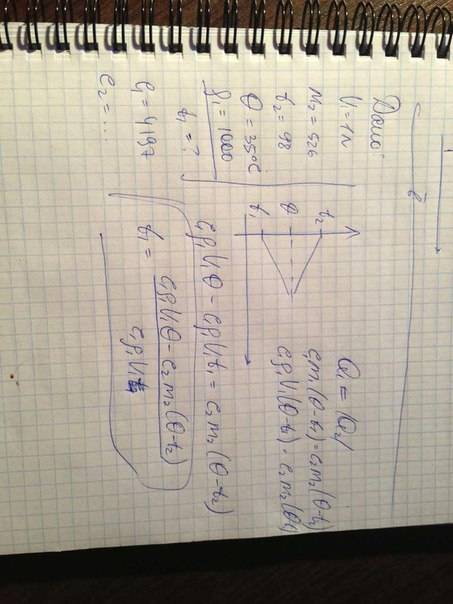 2
Дано:
V₁ = 1л
m₂ = 526
t₂ = 98
θ = 35°C
ρ₁ = 1000
t₁ = ?
c₁ = 4187
c₂ = ...
t₂
θ
t₁
Q₁ = |Q₂|
c₁m₁(θ-t₁) = c₂m₂(θ-t₂)
c₁ρ₁V₁(θ-t₁) = c₂m₂(θ
c₁ρ₁V₁θ - c₁ρ₁V₁t₁ = c₂m₂(θ-t₂)
t₁ = (c₁ρ₁V₁θ - c₂m₂(θ-t₂)) / c₁ρ₁V₁